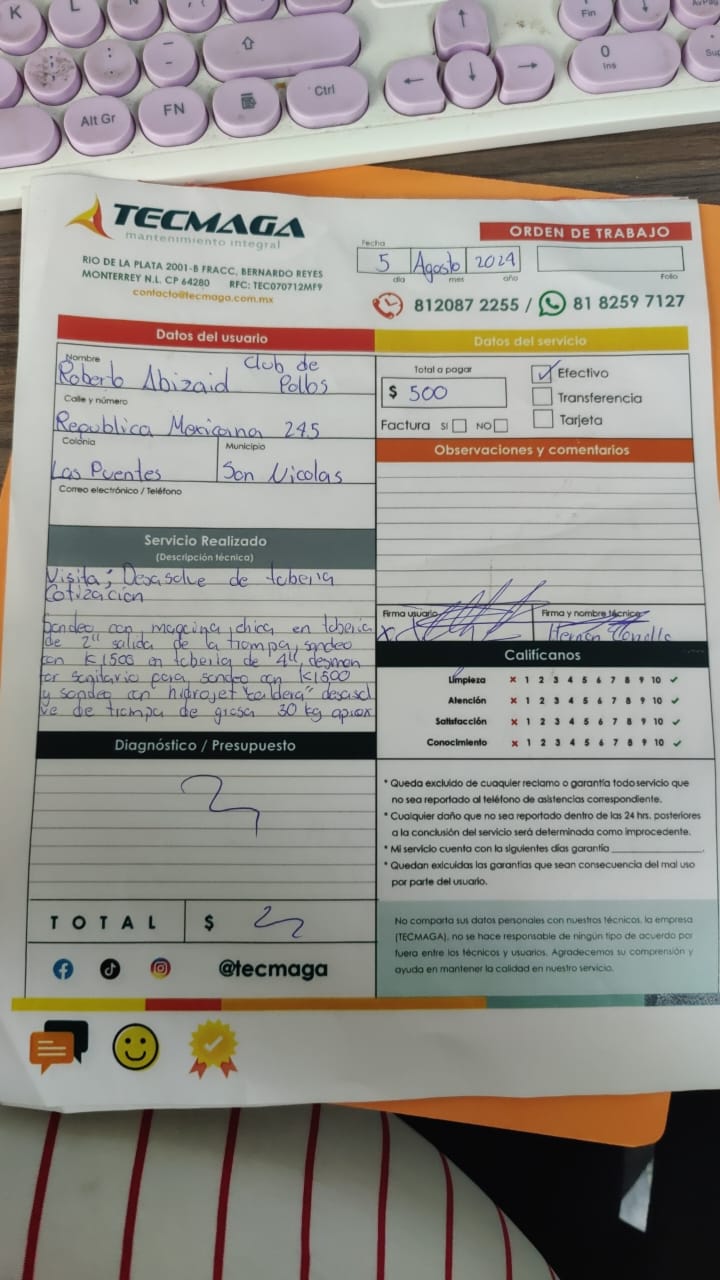 K
L
N
Fin
AvPag
Alt Gr
FN
Ctrl
0
Ins
Sup
TECMAGA
mantenimiento integral
RIO DE LA PLATA 2001-B FRACC, BERNARDO REYES
MONTERREY N.L. CP 64280 RFC: TEC070712MF9
contacto@tecmaga.com.mx
ORDEN DE TRABAJO
Fecha
5 Agosto 2024
día mes año
Folio
812087 2255 / 81 8259 7127
Datos del usuario
Nombre
Roberto Abizaid Club de Pollos
Calle y número
Republica Mexicana 245
Colonia
Las Puentes
Municipio
San Nicolas
Correo electrónico / Teléfono
Servicio Realizado
(Descripción técnica)
Visita; Desasolve de tuberia
Cotizacion
Sondeo con maquina chica en tuberia
de 2" salida de la trampa, sondeo
con K1500 en tuberia de 4", desmon
tar sanitario para sondeo con K1500
y sondeo con hidrojet "caldera" desasol
ve de trampa de grasa 30 kg aprox
Diagnóstico / Presupuesto
TOTAL $
@tecmaga
Datos del servicio
Total a pagar
$ 500
Efectivo
Transferencia
Tarjeta
Factura SI NO
Observaciones y comentarios
Firma usuario
X
Firma y nombre técnico
Hernan
Califícanos
Limpieza x 1 2 3 4 5 6 7 8 9 10 ✓
Atención x 1 2 3 4 5 6 7 8 9 10 ✓
Satisfacción x 1 2 3 4 5 6 7 8 9 10 ✓
Conocimiento x 1 2 3 4 5 6 7 8 9 10 ✓
* Queda excluido de cuaquier reclamo o garantía todo servicio que
no sea reportado al teléfono de asistencias correspondiente.
* Cualquier daño que no sea reportado dentro de las 24 hrs. posteriores
a la conclusión del servicio será determinada como improcedente.
* Mi servicio cuenta con la siguientes días garantía ______________.
* Quedan exlcuidas las garantías que sean consecuencia del mal uso
por parte del usuario.
No comparta sus datos personales con nuestros técnicos, la empresa
(TECMAGA), no se hace responsable de ningún tipo de acuerdo por
fuera entre los técnicos y usuarios. Agradecemos su comprensión y
ayuda en mantener la calidad en nuestro servicio.